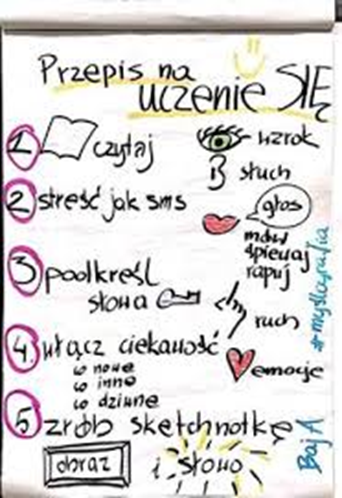 Przepis na
uczenie SIĘ
1 czytaj
wzrok
słuch
2 streść jak sms
głos
mów
śpiewaj
rapuj
3 podkreśl
słowa
ruch
4. włącz ciekawość
co nowe
co inne
co dziwne
emocje
5 zrób sketchnotkę
obraz i słowo
#myślografia